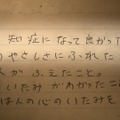 知症になって良かった
のやさしさにふれた
人がふえたこと。
いたみがわかったこ
は人の心のいたみを